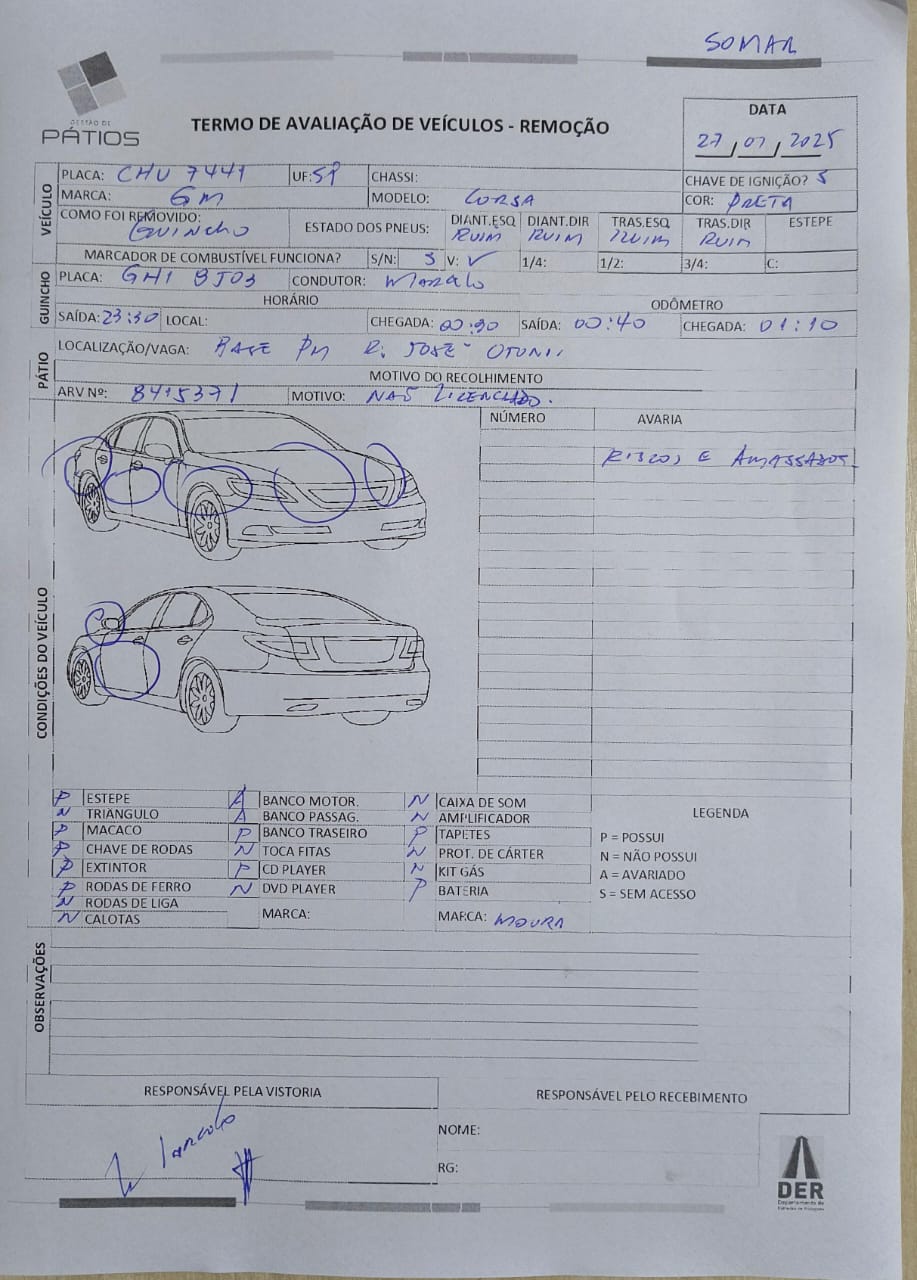 SOMAR
GESTÃO DE
PÁTIOS
TERMO DE AVALIAÇÃO DE VEÍCULOS - REMOÇÃO
DATA
27/07/2025
VEÍCULO
PLACA: CHU 7441 UF: SP CHASSI: CHAVE DE IGNIÇÃO? S
MARCA: GM MODELO: CORSA COR: PRETA
COMO FOI REMOVIDO: GUINCHO ESTADO DOS PNEUS: DIANT.ESQ RUIM DIANT.DIR RUIM TRAS.ESQ RUIM TRAS.DIR RUIM ESTEPE
MARCADOR DE COMBUSTÍVEL FUNCIONA? S/N: S V: ✓ 1/4: 1/2: 3/4: C:
GUINCHO
PLACA: GHI 8J03 CONDUTOR:
HORÁRIO ODÔMETRO
SAÍDA: 23:30 LOCAL: CHEGADA: SAÍDA: 00:40 CHEGADA: 01:10
PÁTIO
LOCALIZAÇÃO/VAGA: BASE PM R. JOSÉ
MOTIVO DO RECOLHIMENTO
ARV Nº: 8415371 MOTIVO: NAO LICENCIADO.
CONDIÇÕES DO VEÍCULO
NÚMERO AVARIA
RISCOS E AMASSADOS
P ESTEPE A BANCO MOTOR. N CAIXA DE SOM
N TRIANGULO A BANCO PASSAG. N AMPLIFICADOR
P MACACO P BANCO TRASEIRO P TAPETES
P CHAVE DE RODAS N TOCA FITAS N PROT. DE CÁRTER
P EXTINTOR P CD PLAYER N KIT GÁS
P RODAS DE FERRO N DVD PLAYER P BATERIA
N RODAS DE LIGA
N CALOTAS MARCA: MARCA: MOURA
LEGENDA
P = POSSUI
N = NÃO POSSUI
A = AVARIADO
S = SEM ACESSO
OBSERVAÇÕES
RESPONSÁVEL PELA VISTORIA
RESPONSÁVEL PELO RECEBIMENTO
NOME:
RG:
DER